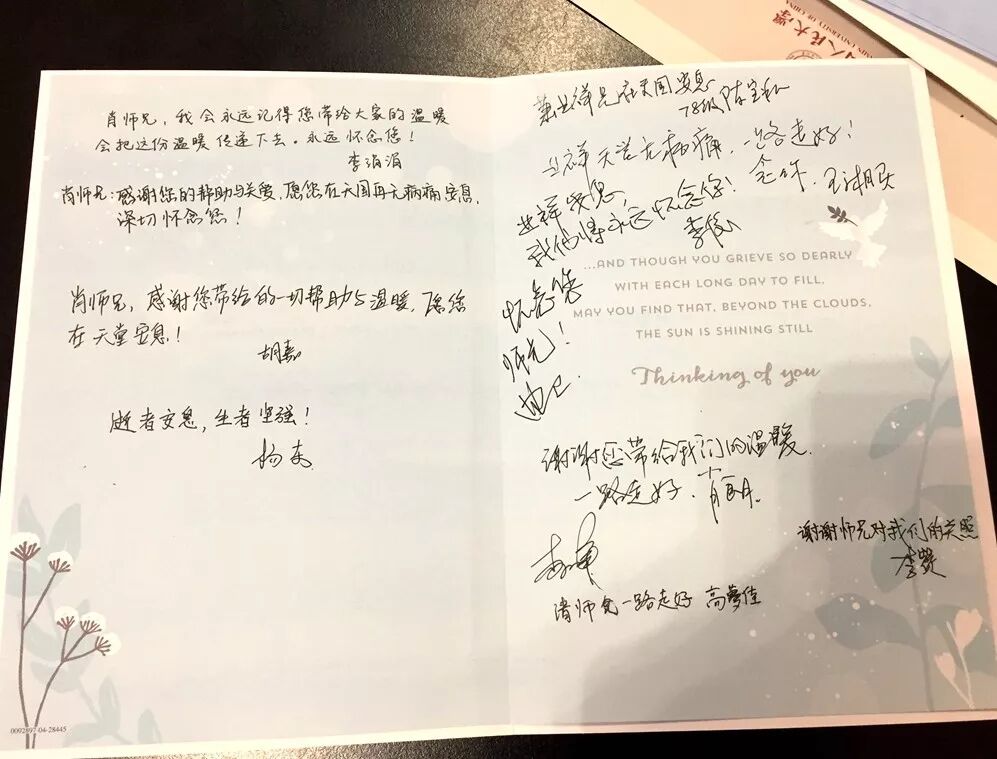 肖师兄，我会永远记得您带给大家的温暖
会把这份温暖传递下去。永远怀念您！
李涓涓
肖师兄：感谢您的帮助与关爱，愿您在天国再无病痛，安息，
深切怀念您！
肖师兄，感谢您带给的一切帮助与温暖，愿您
在天堂安息！
胡嘉
逝者安息，生者坚强！
杨东
兄在天国安息
78级
天堂无病痛，一路走好！
安息，
我们将永远怀念您！
李
怀念
师兄！
...AND THOUGH YOU GRIEVE SO DEARLY
WITH EACH LONG DAY TO FILL,
MAY YOU FIND THAT, BEYOND THE CLOUDS,
THE SUN IS SHINING STILL
Thinking of you
谢谢您带给我们的温暖.
一路走好.
谢谢师兄对我们的关照
李赞
师兄一路走好 高梦佳
0092897-04-28445
人民大学
UNIVERSITY OF CHINA